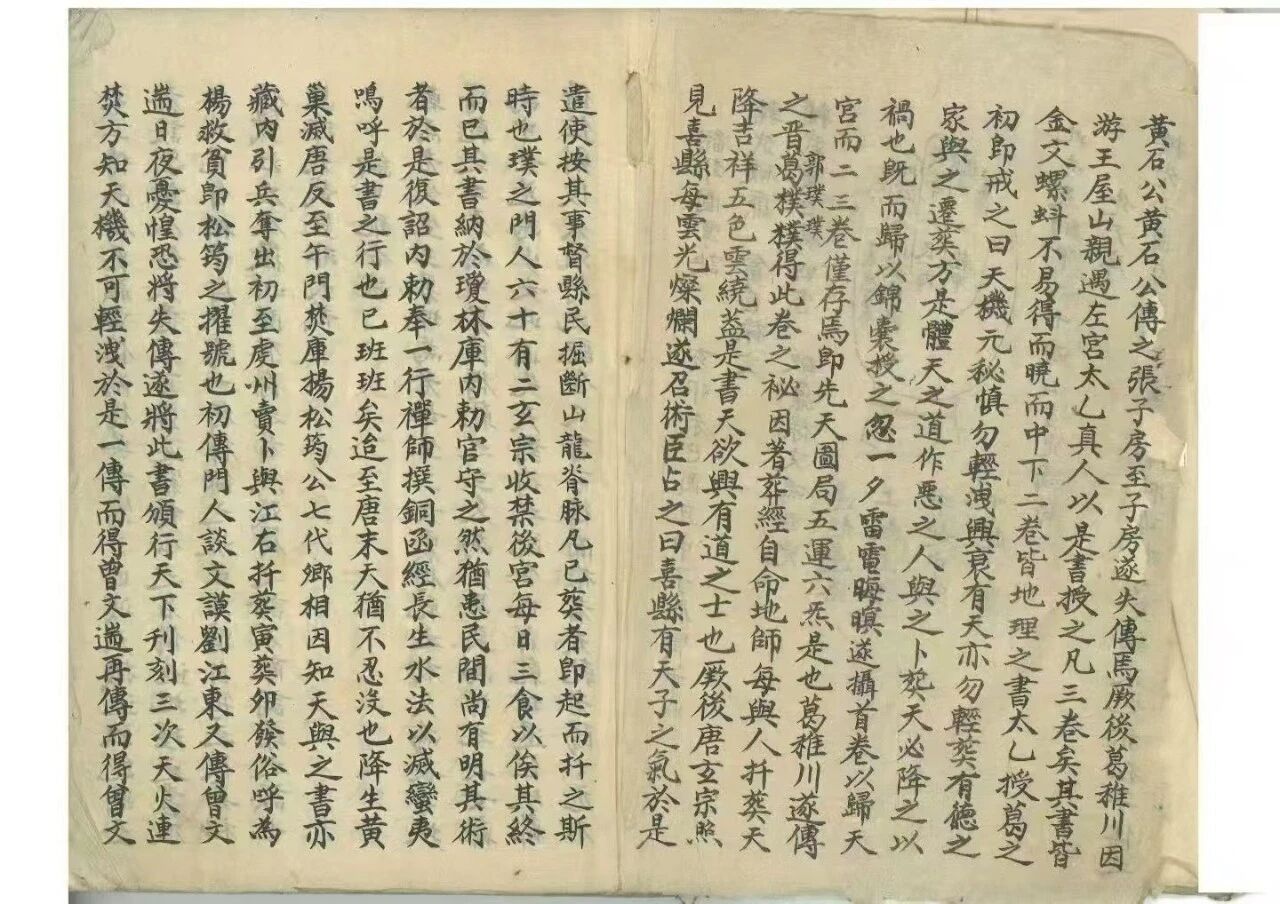 黃石公黃石公傳之張子房至子房遂失傳焉厥後葛稚川因
游王屋山親遇左宮太乙真人以是書授之凡三卷矣其書皆
金文螺蚪不易得而曉而中下二卷皆地理之書太乙授葛之
初即戒之曰天機元秘慎勿輕洩興衰有天亦勿輕葬有德之
家與之遷葬方是體天之道作惡之人與之卜葬天必降之以
禍也既而歸以錦囊授之忽一夕雷電晦暝遂攝首卷以歸天
宮而二三卷僅存焉即先天圖局五運六炁是也葛稚川遂傳
郭璞璞
之晉葛樸樸得此卷之祕因著葬經自命地師每與人扦葬天
降吉祥五色雲繞盖是書天欲興有道之士也厥後唐玄宗照
見喜縣每雲光燦爛遂召術臣占之曰喜縣有天子之氣於是
遣使按其事督縣民掘斷山龍脊脉凡已葬者即起而扦之斯
時也璞之門人六十有二玄宗收禁後宮每日三食以俟其終
而已其書納於瓊林庫內勅官守之然猶患民間尚有明其術
者於是復詔內勅奉一行禪師撰銅函經長生水法以滅蠻夷
嗚呼是書之行也已班班矣迨至唐末天猶不忍沒也降生黃
巢滅唐反至午門焚庫揚松筠公七代卿相因知天與之書亦
藏內引兵奪出初至虔州賣卜與江右扦葬寅葬卯發俗呼為
楊救貧即松筠之擢號也初傳門人談文謨劉江東又傳曾文
遄日夜憂惶恐將失傳遂將此書頒行天下刊刻三次天火連
焚方知天機不可輕洩於是一傳而得曾文遄再傳而得曾文